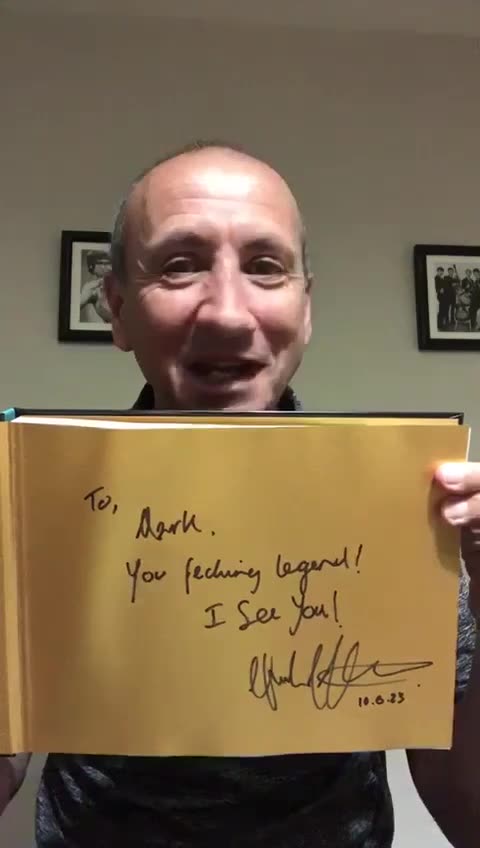 To,
Mark.
You fecking legend!
I See You!
10.6.23